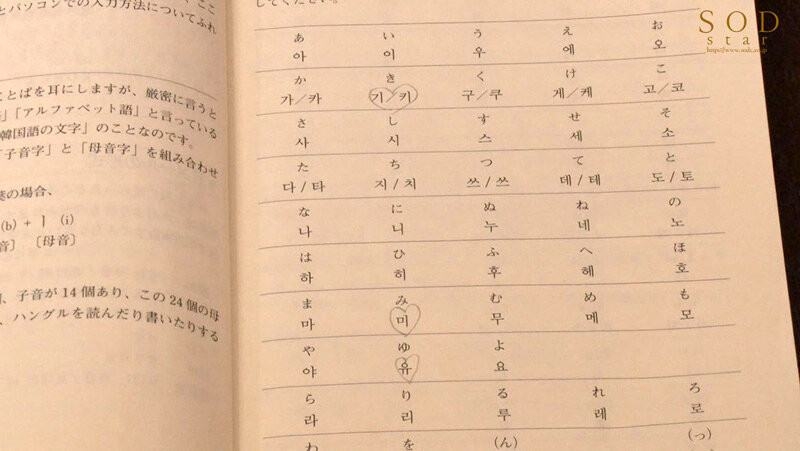 とパソコンでの入力方法についてふれ
ことばを耳にしますが、厳密に言うと
「アルファベット語」と言っている
韓国語の文字」のことなのです。
「子音字」と「母音字」を組み合わせ
の場合、
(b) + ㅣ (i)
音〕 〔母音〕
子音が14個あり、この24個の母
、ハングルを読んだり書いたりする
してください。
あ い う え お
아 이 우 에 오
か き く け こ
가/카 기/키 구/쿠 게/케 고/코
さ し す せ そ
사 시 스 세 소
た ち つ て と
다/타 지/치 쓰/쓰 데/테 도/토
な に ぬ ね の
나 니 누 네 노
は ひ ふ へ ほ
하 히 후 헤 호
ま み む め も
마 미 무 메 모
や ゆ よ
야 유 요
ら り る れ ろ
라 리 루 레 로
わ を (ん) (っ)
SOD
star